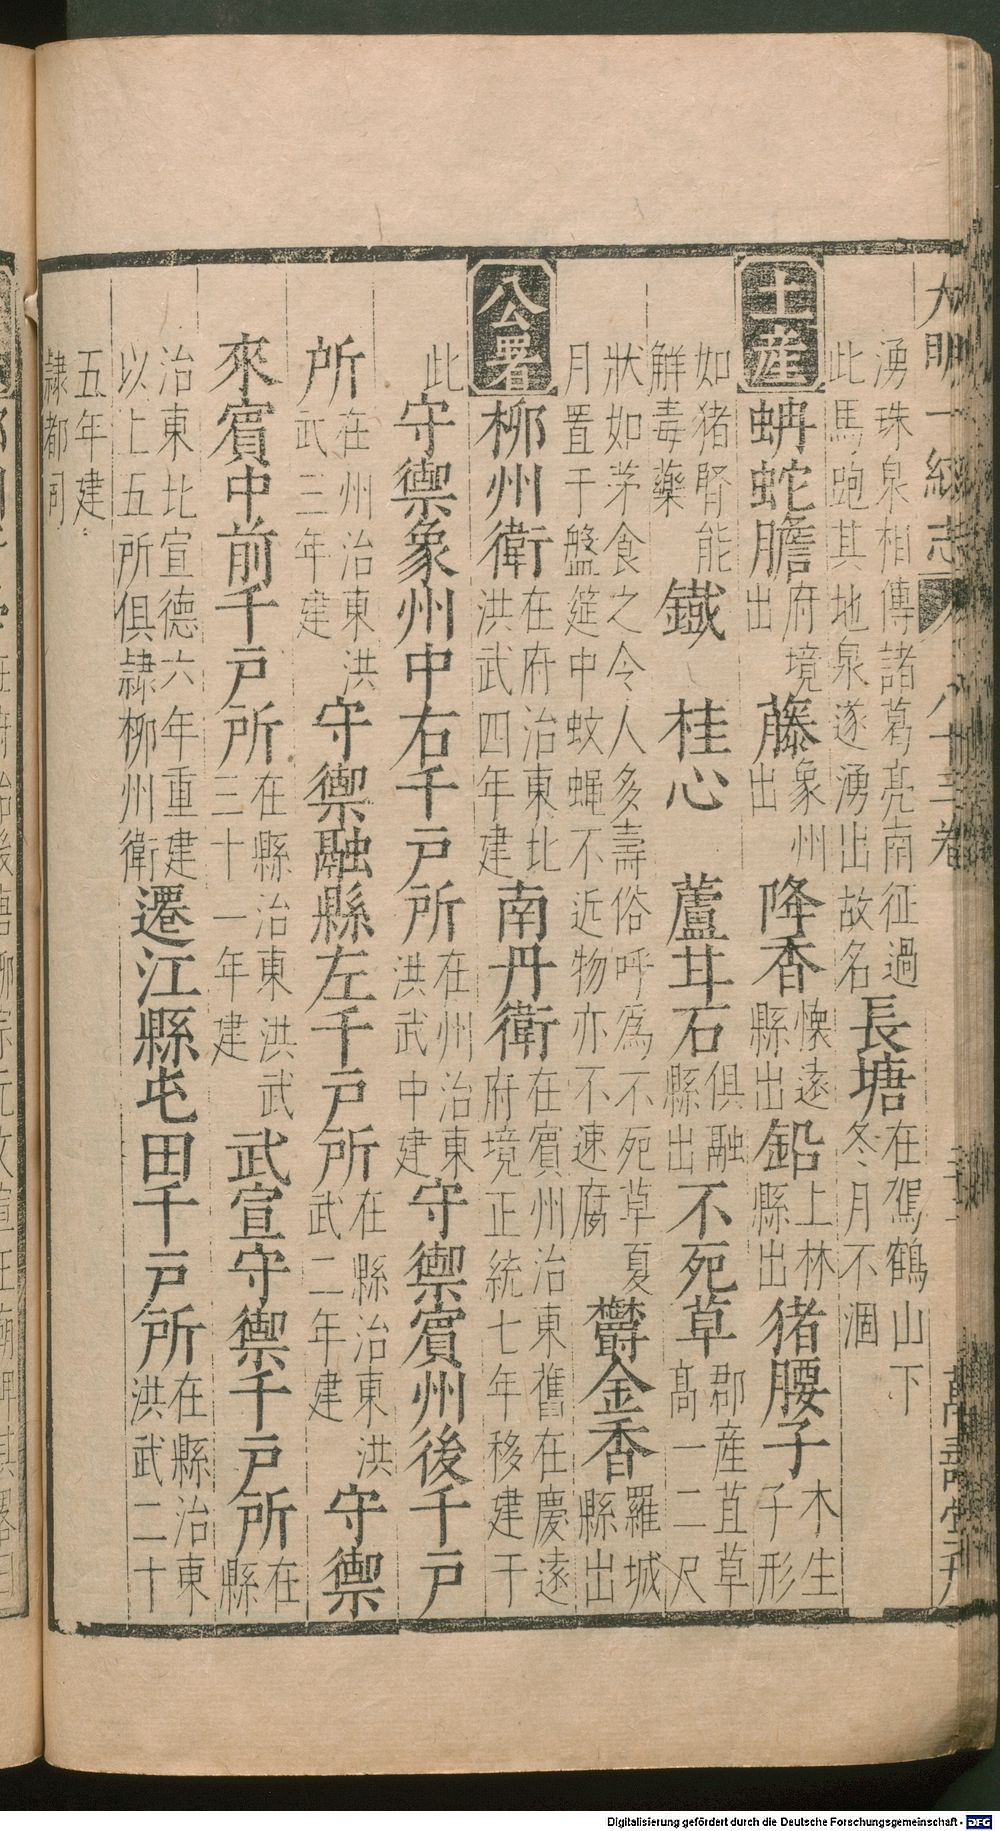 大明一統志 八十三卷 萬壽堂刊
湧珠泉相傳諸葛亮南征過
此馬跑其地泉遂湧出故名
長塘
在鴛鶴山下
冬月不涸
土產
蚺蛇膽
府境
出
藤
象州
出
降香
懷遠
縣出
鉛
上林
縣出
猪腰子
木生
子形
如猪腎能
解毒藥
鐵
桂心
蘆甘石
俱融
縣出
不死草
郡産苴草
高一二尺
狀如茅食之令人多壽俗呼爲不死草夏
月置于盤筵中蚊蠅不近物亦不速腐
欝金香
羅城
縣出
公署
柳州衛
在府治東北
洪武四年建
南丹衛
在賓州治東舊在慶遠
府境正統七年移建于
此
守禦象州中右千戶所
在州治東
洪武中建
守禦賓州後千戶
所
在州治東洪
武三年建
守禦融縣左千戶所
在縣治東洪
武二年建
守禦
來賓中前千戶所
在縣治東洪武
三十一年建
武宣守禦千戶所
在
縣
治東北宣德六年重建
以上五所俱隷柳州衛
遷江縣屯田千戶所
在縣治東
洪武二十
五年建
隷都同
Digitalisierung gefördert durch die Deutsche Forschungsgemeinschaft - DFG